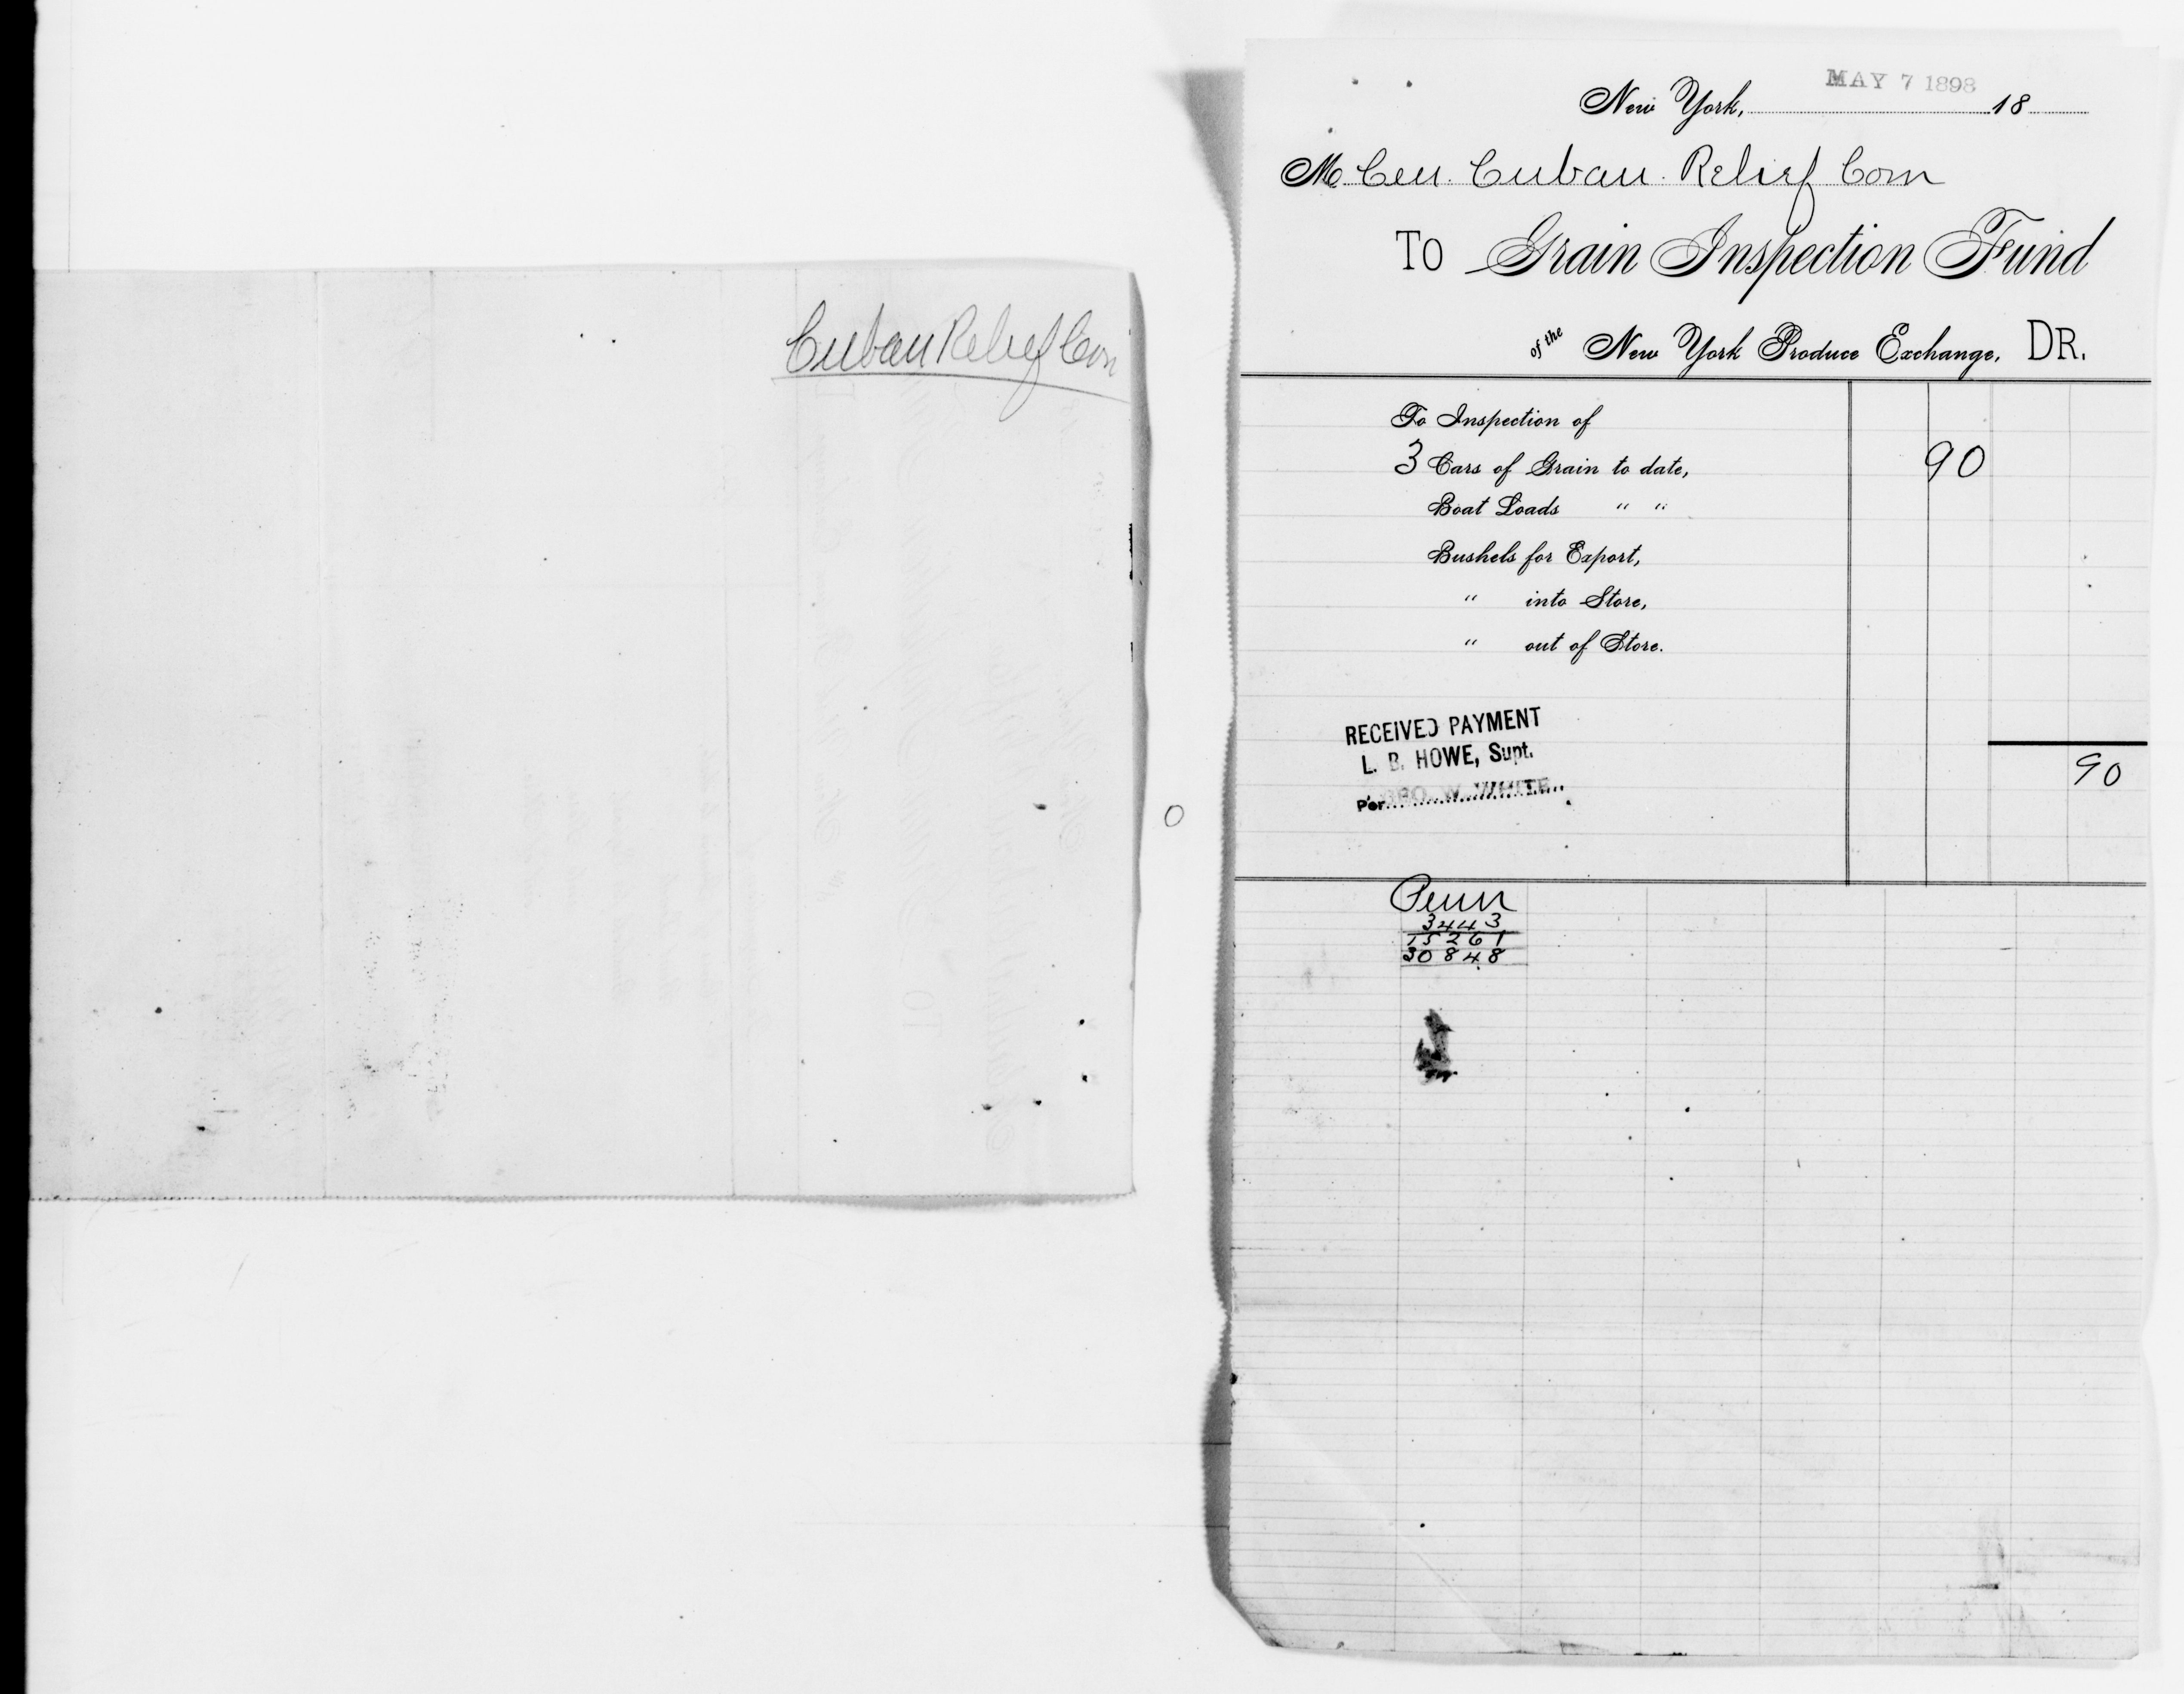 Cuban Relief Com
MAY 7 1898
New York, 18
M Cen. Cuban Relief Com
TO Grain Inspection Fund
of the New York Produce Exchange, DR.
To Inspection of
3 Cars of Grain to date, 90
Boat Loads " "
Bushels for Export,
" into Store,
" out of Store.
RECEIVED PAYMENT
L. B. HOWE, Supt.
Per GEO. W. WHITE
90
Penn
3443
15261
30848